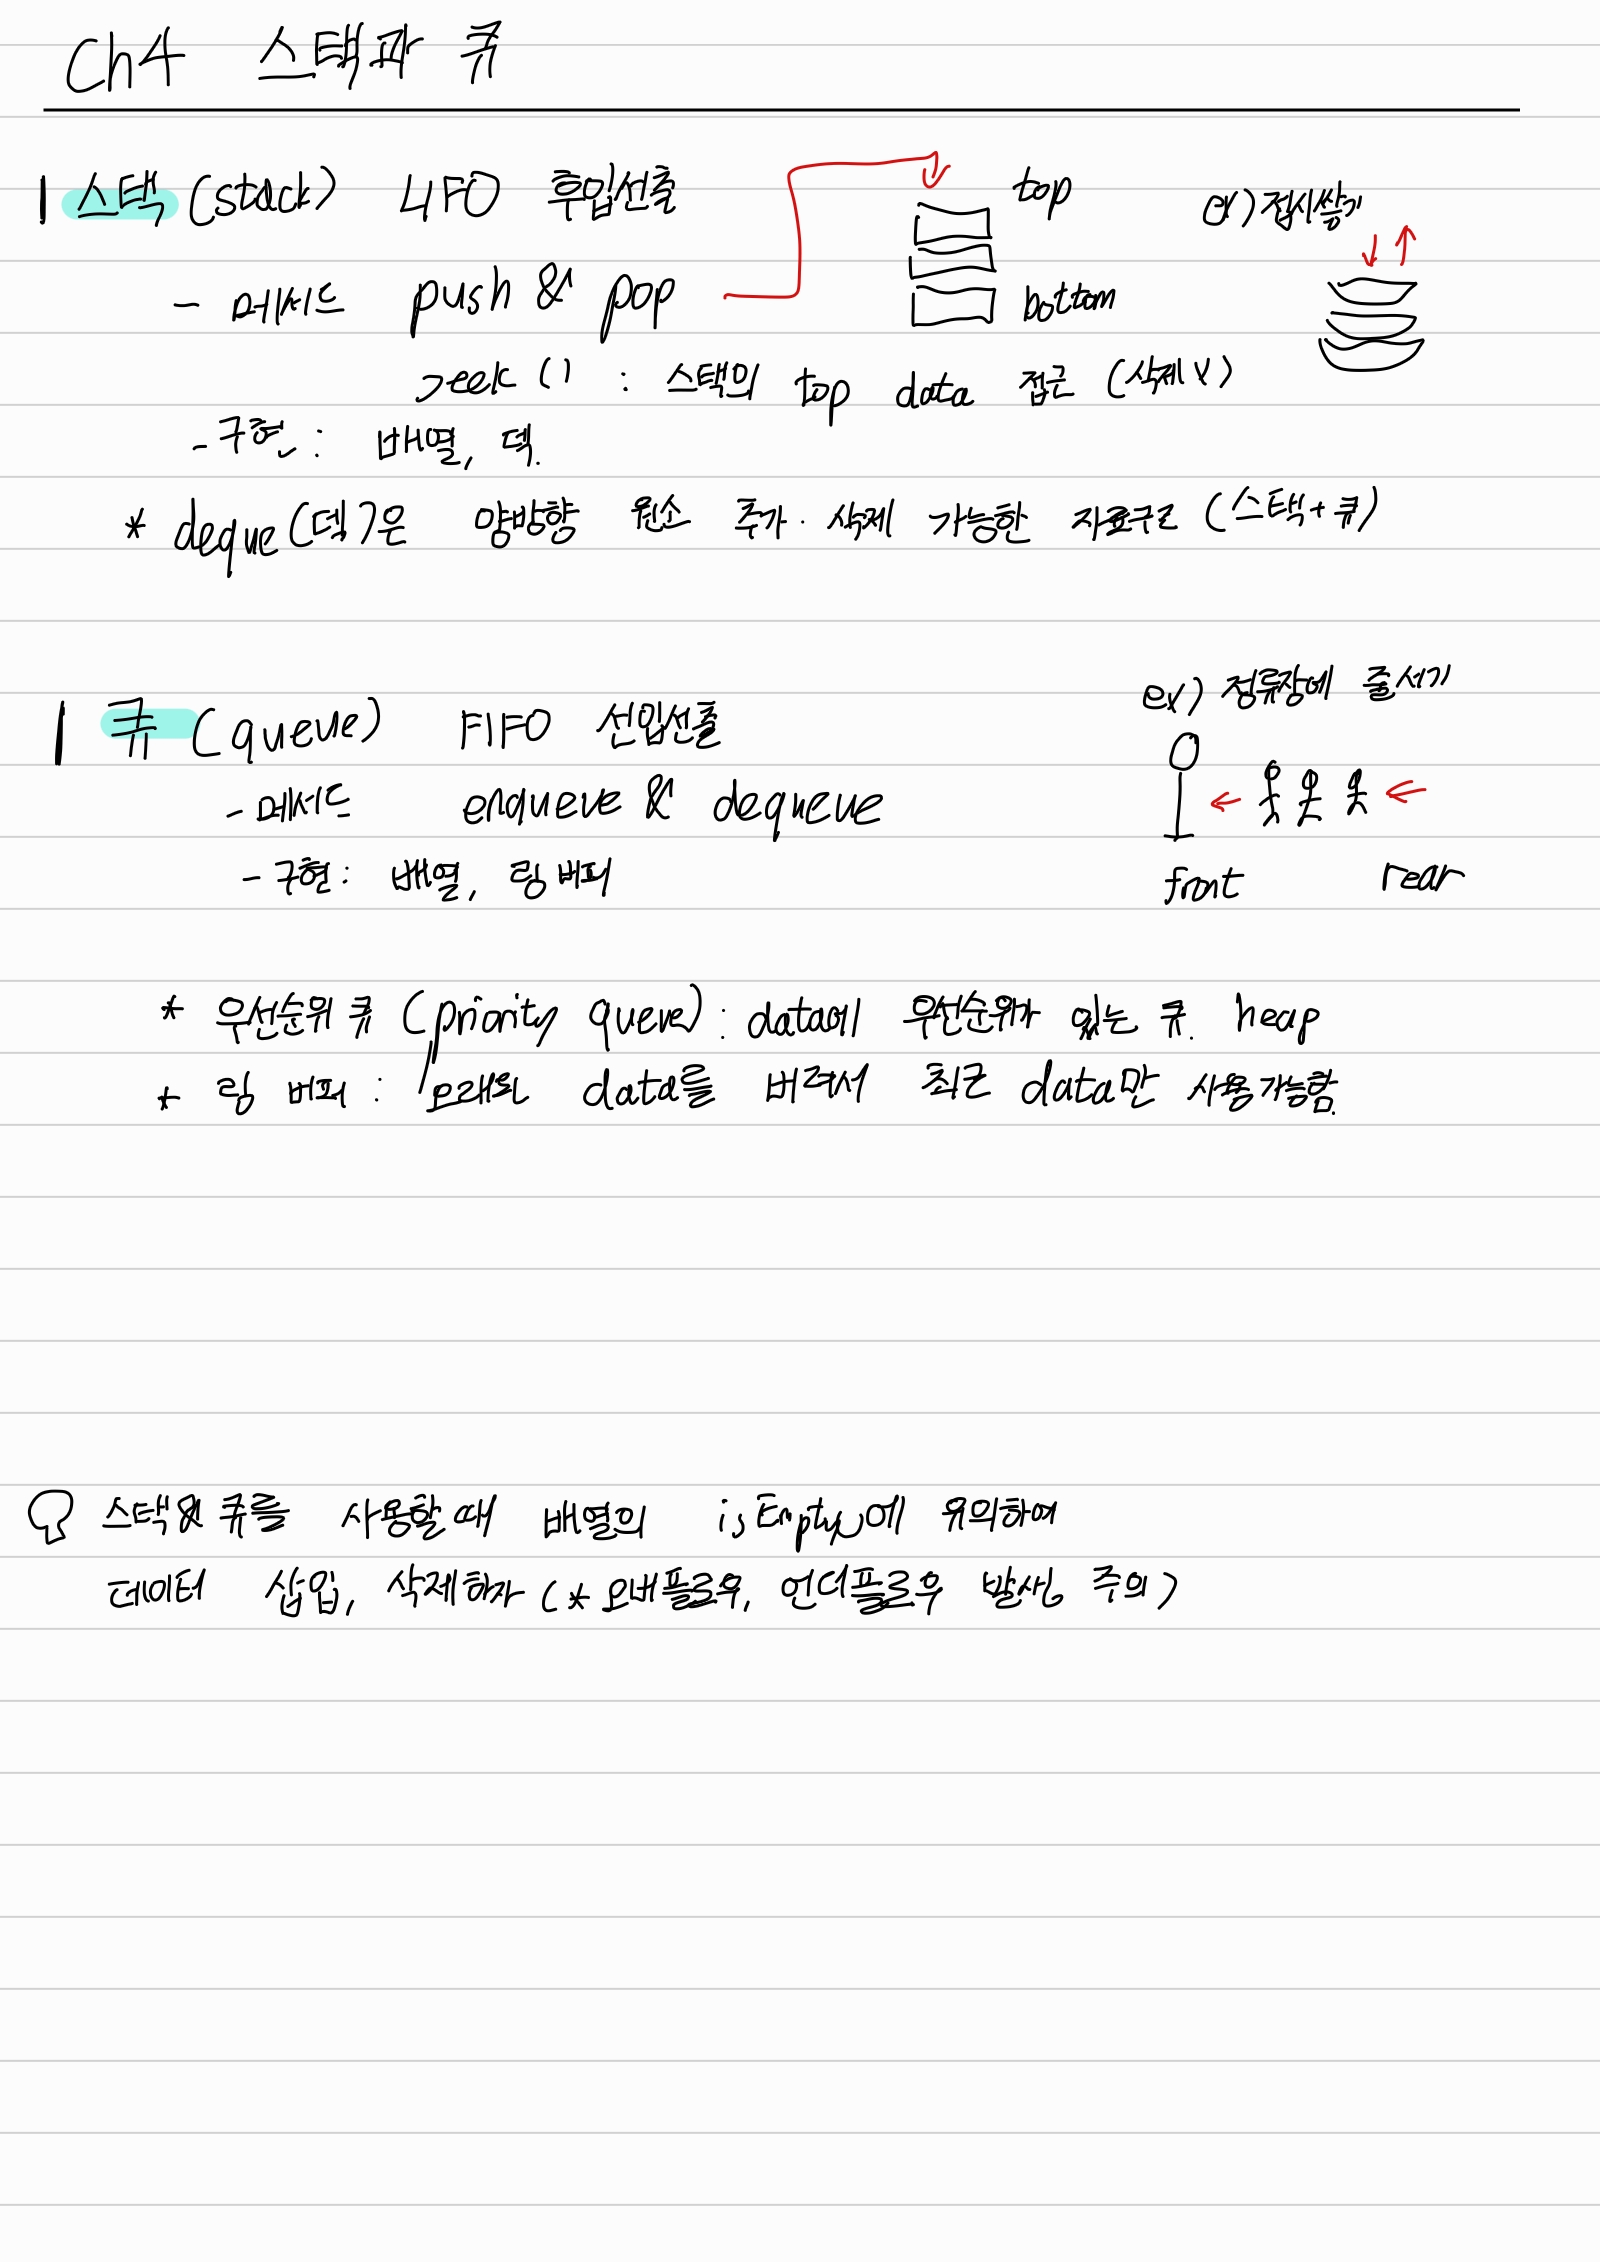 Ch4 스택과 큐
스택 (stack) LIFO 후입선출
top
ex) 접시쌓기
- 메서드 push & pop
bottom
peek () : 스택의 top data 접근 (삭제 X)
- 구현 : 배열, 덱.
* deque (덱)은 양방향 원소 추가·삭제 가능한 자료구조 (스택+큐)
ex) 정류장에 줄서기
큐 (queue) FIFO 선입선출
- 메서드 enqueue & dequeue
- 구현 : 배열, 링 버퍼
front rear
* 우선순위 큐 (priority queue) : data에 우선순위가 있는 큐. heap
* 링 버퍼 : 오래된 data를 버려서 최근 data만 사용가능함.
스택 & 큐를 사용할 때 배열의 isEmpty에 유의하여
데이터 삽입, 삭제하자 (* 오버플로우, 언더플로우 발생 주의)